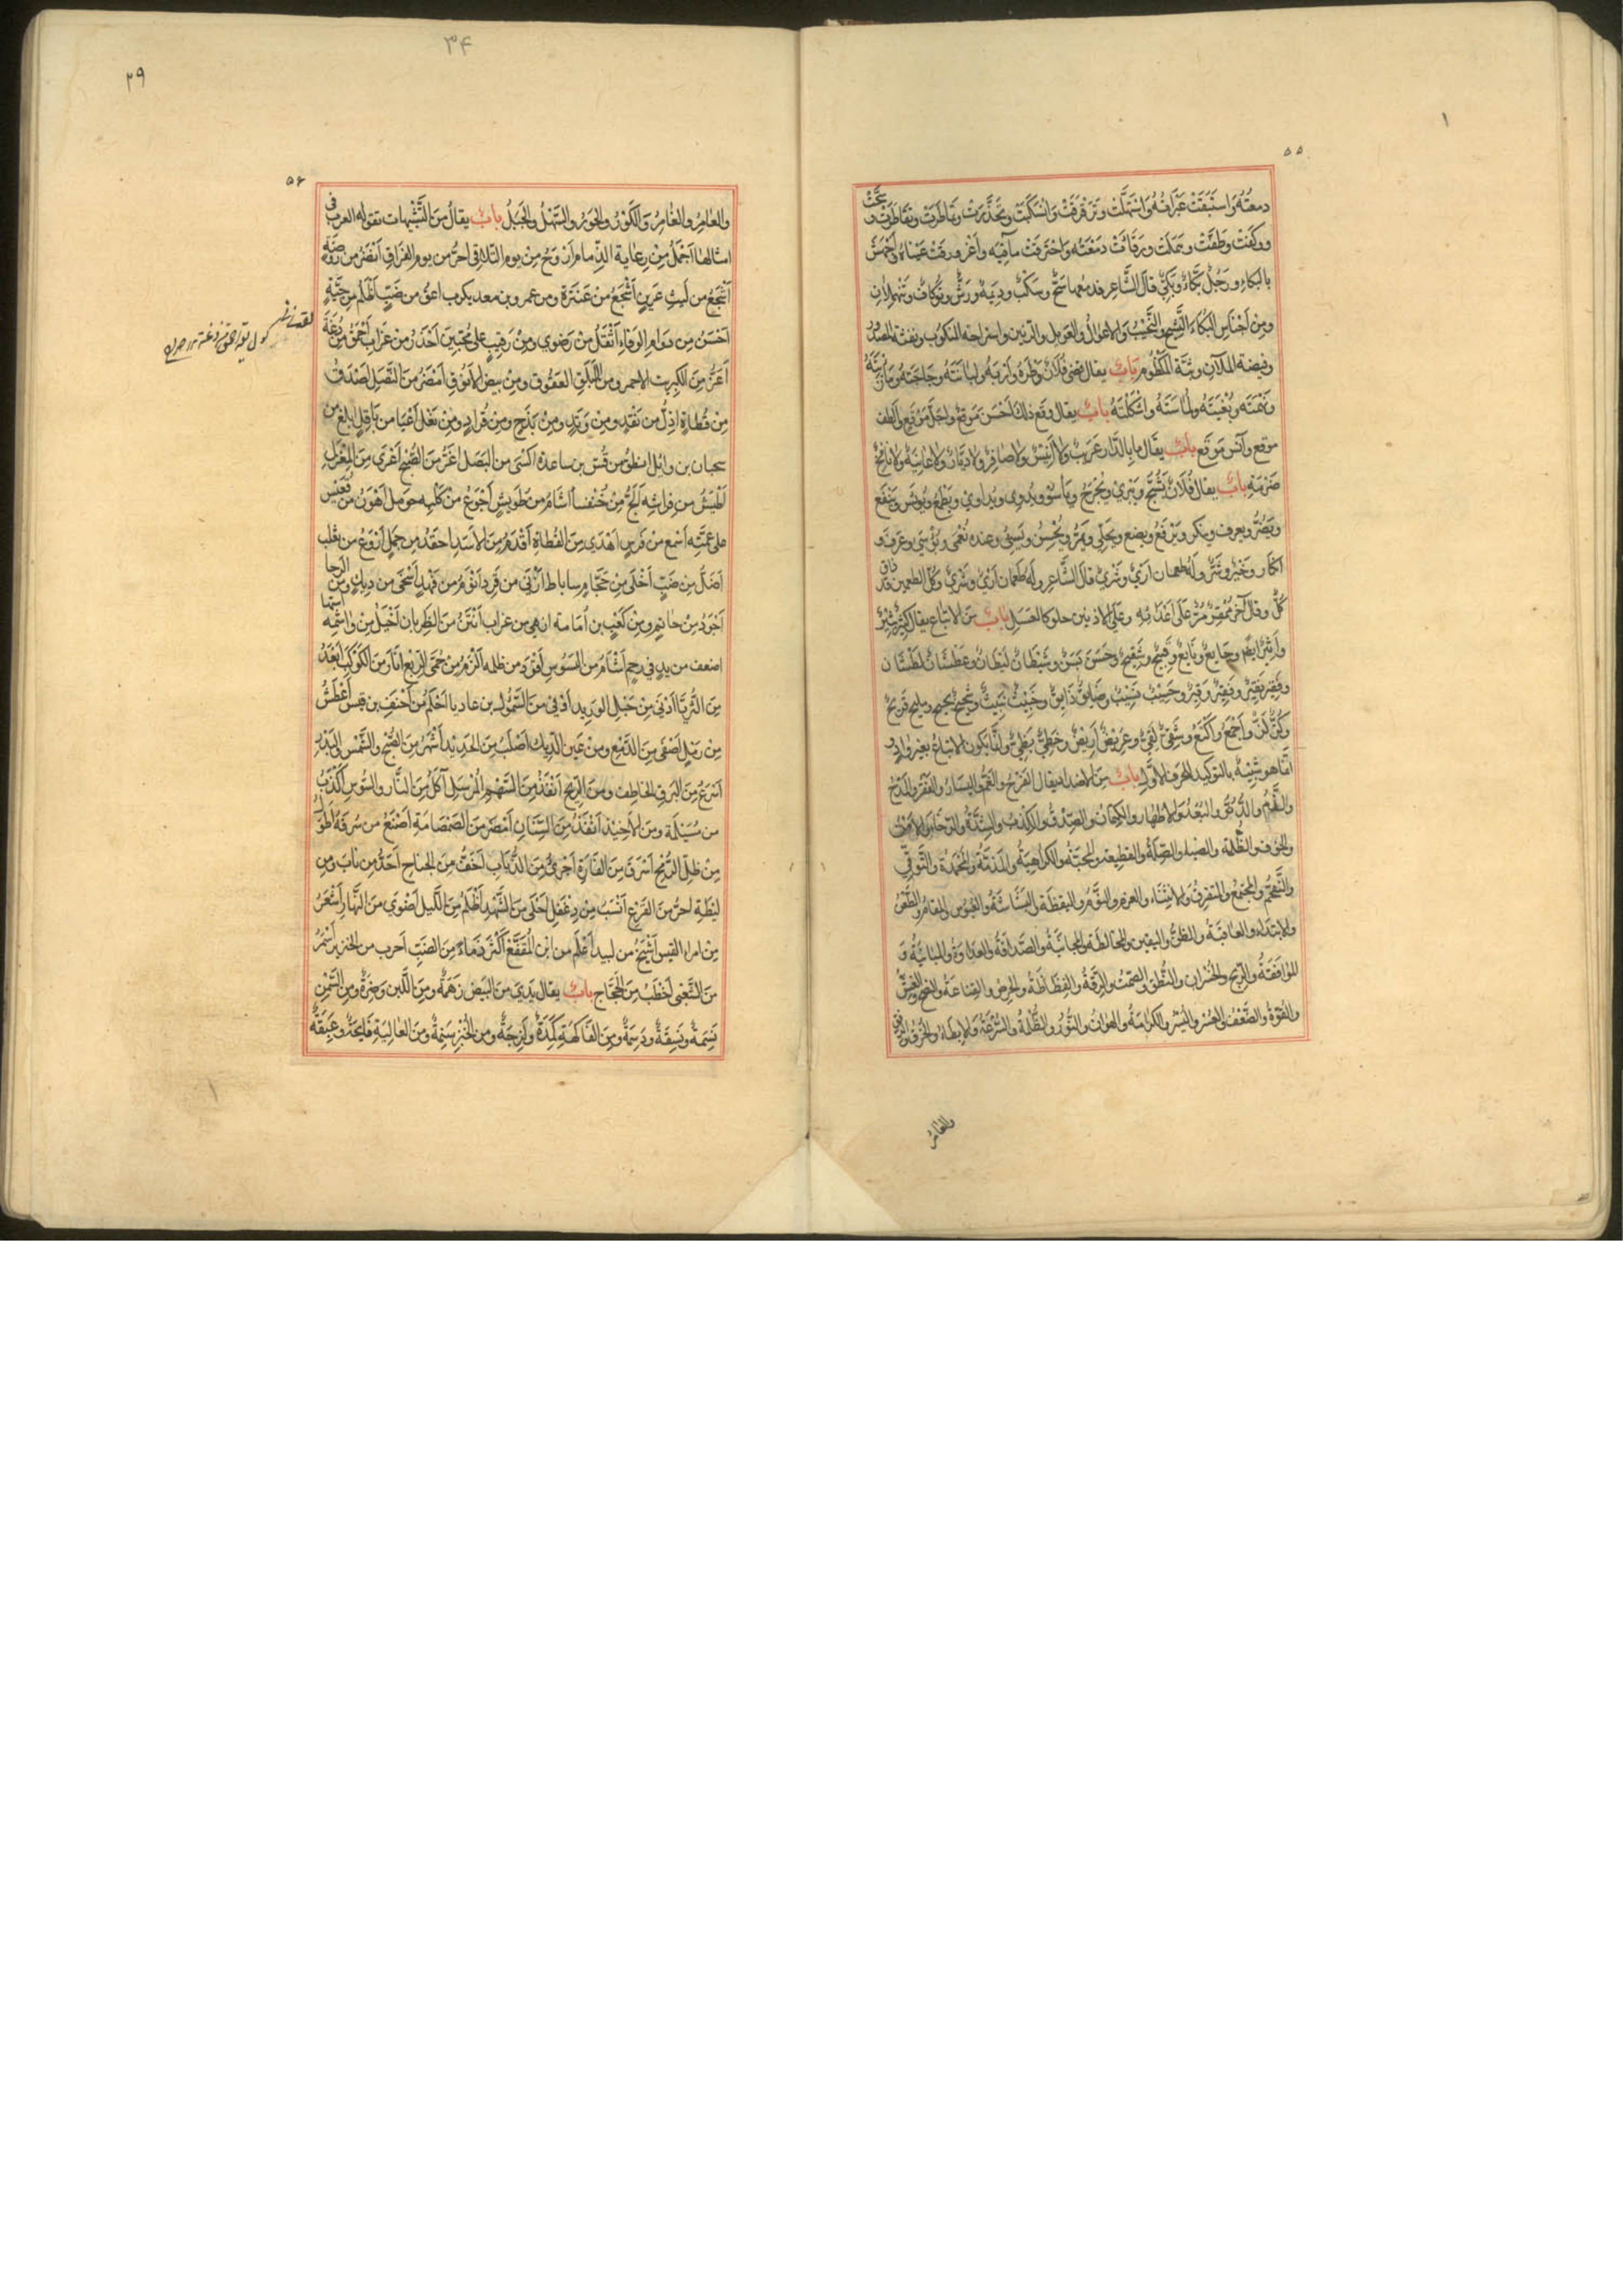 ۵۵
دمعته واستبقت عبراته واستهلّت وترقرقت وانسكبت وتحدّرت وتماطرت وتقاطرت و
ووكفت وطفّت وهملت ورقأت دمعته واحترقت مآقيه واغرورقت عيناه واجهش
بالبكاء ورجل بكّاء وبكيّ قال الشاعر فدمعهما سحّ وسكب وديمة ورشّ وتوكاف وتنهملان
ومن اجناس البكاء النشيج والنحيب والاعوال والعويل والرنين واستراحة المنكوب ونفثة المصدور
وفيضة الملآن وبثّة المكظوم باب يقال قضى فلان وطره واربه ولبانته وحاجته ومأربته
ونهمته وبغيته ولماسته واشكلته باب يقال وقع ذلك احسن موقع واجلّ موقع والطف
موقع وآنس موقع باب يقال ما بالدار عريب ولا انيس ولا صافر ولا ديّار ولا نافخ
ضرمة باب يقال فلان يشجّ ويبري ويجرح ويأسو ويدوي ويداوي ويطمع ويؤيس وينفع
ويضرّ ويعرف وينكر ويرفع ويضع ويحلي ويمرّ ويحسن ويسيء وعنده نعمى وبؤسى وعرف و
انكار وخير وشرّ وله طعمان اري وشري قال الشاعر وله طعمان اري وشري وكلا الطعمين قد ذاق
كلّ وقال آخر ممقر مرّ على اعدائه وعلى الادنين حلو كالعسل باب من الاتباع يقال كثير بثير
وجايع نايع وقبيح وشقيح وحسن بسن وشيطان ليطان وعطشان نطشان
وفقير نقير وحسيب نسيب وضايق ذايق وخبيث نبيث وشحيح نحيح ومليح قزيح
واجمع واكتع وشقيّ لقيّ وعريض اريض وخطيّ بظيّ وانما يكون الاتباع بغير واو
انما هو شبيه بالتوكيد للحرف الاول باب من الاضداد يقال الفرح والغم واليسار والفقر والمدح
والذم والدنو والبعد والاظهار والكتمان والصدق والكذب والشدة والرخاء والامن
والخوف والظلمة والضياء والصلة والقطيعة والمحبة والكراهية والمذمة والمحمدة والتوقي
والتقحم والمجتمع والمتفرق والانثناء والعزم والنوم واليقظة والبشاشة والعبوس والمقام والظعن
والابتداء والعاقبة والظن واليقين والمخالطة والمجانبة والصداقة والعداوة والمباينة و
الموافقة والربح والخسران والنطق والصمت والرقة والفظاظة والحرص والقناعة والنصح والغش
والقوة والضعف والعسر واليسر والكرامة والهوان والنور والظلمة والسرعة والابطاء والخرق والرفق
والغامر
۳۴
۲۹
۵۶
والعامر والغامر والكور والحور والسهل والجبل باب يقال من التشبيهات تقوله العرب في
امثالها اجمل من رعاية الذمام اروح من يوم التلاقي احرّ من يوم الفراق انضر من روضة
اشجع من ليث عرين اشجع من عنترة ومن عمرو بن معديكرب اعقّ من ضبّ اظلم من حيّة
احسن من دوام الوفاء اثقل من رضوي ومن رقيب على محبّين احذر من غراب احمق من دغة
اعزّ من الكبريت الاحمر ومن الابلق العقوق ومن بيض الانوق امضى من النصل اصدق
من قطاة اذلّ من نقد ومن وتد ومن بذج ومن قراد ومن نعل اعيا من باقل ابلغ من
سحبان بن وائل انطق من قسّ بن ساعدة اكسى من البصل اغرّ من الصبح اعرى من المغزل
اطيش من فراشة الجّ من خنفساء اشأم من طويس اجوع من كلبة حومل اهون من قعيس
على عمّته اسمع من فرس اهدي من القطاة اقدم من الاسد احقد من جمل اروغ من ثعلب
اضلّ من ضبّ اخلى من حجّام ساباط ازنى من قرد انوم من فهد اسخى من ديك ومن الرحا
اجود من حاتم ومن كعب بن امامة ازهى من غراب انتن من الظربان اخيل من واشمة استها
اضعف من يد في رحم اشأم من البسوس اقود من ظلمة الزم من حمّى الربع انأر من الكوكب ابعد
من الثريا ادنى من حبل الوريد اوفى من السموأل بن عاديا احلم من احنف بن قيس اعطش
من رمل اصفى من الدمع ومن عين الديك اصلب من الحديد اشهر من الصبح والشمس والبدر
اسرع من البرق الخاطف ومن الريح انفذ من السهم المرسل آكل من النار والسوس اكذب
من مسيلمة ومن الاخيذ انفذ من السنان امضى من الصمصامة اصنع من سرفة اطول
من ظلّ الرمح اسرق من الفارة اجرى من الذباب اخفّ من الجناح احدّ من ناب ومن
ليطة احرّ من القرع انسب من دغفل احلى من الشهد اظلم من الليل اضوى من النهار اشعر
من امرء القيس اشيخ من لبيد اعلم من ابن المقفع اكثر ذماء من الضب
من اخطب من الحجّاج باب يقال يدي من البيض زهمة ومن اللبن وضرة ومن السمن
نسمة ونسقة ودسمة ومن الفاكهة ولزجة ومن الخبز ومن الغالية وعبقة